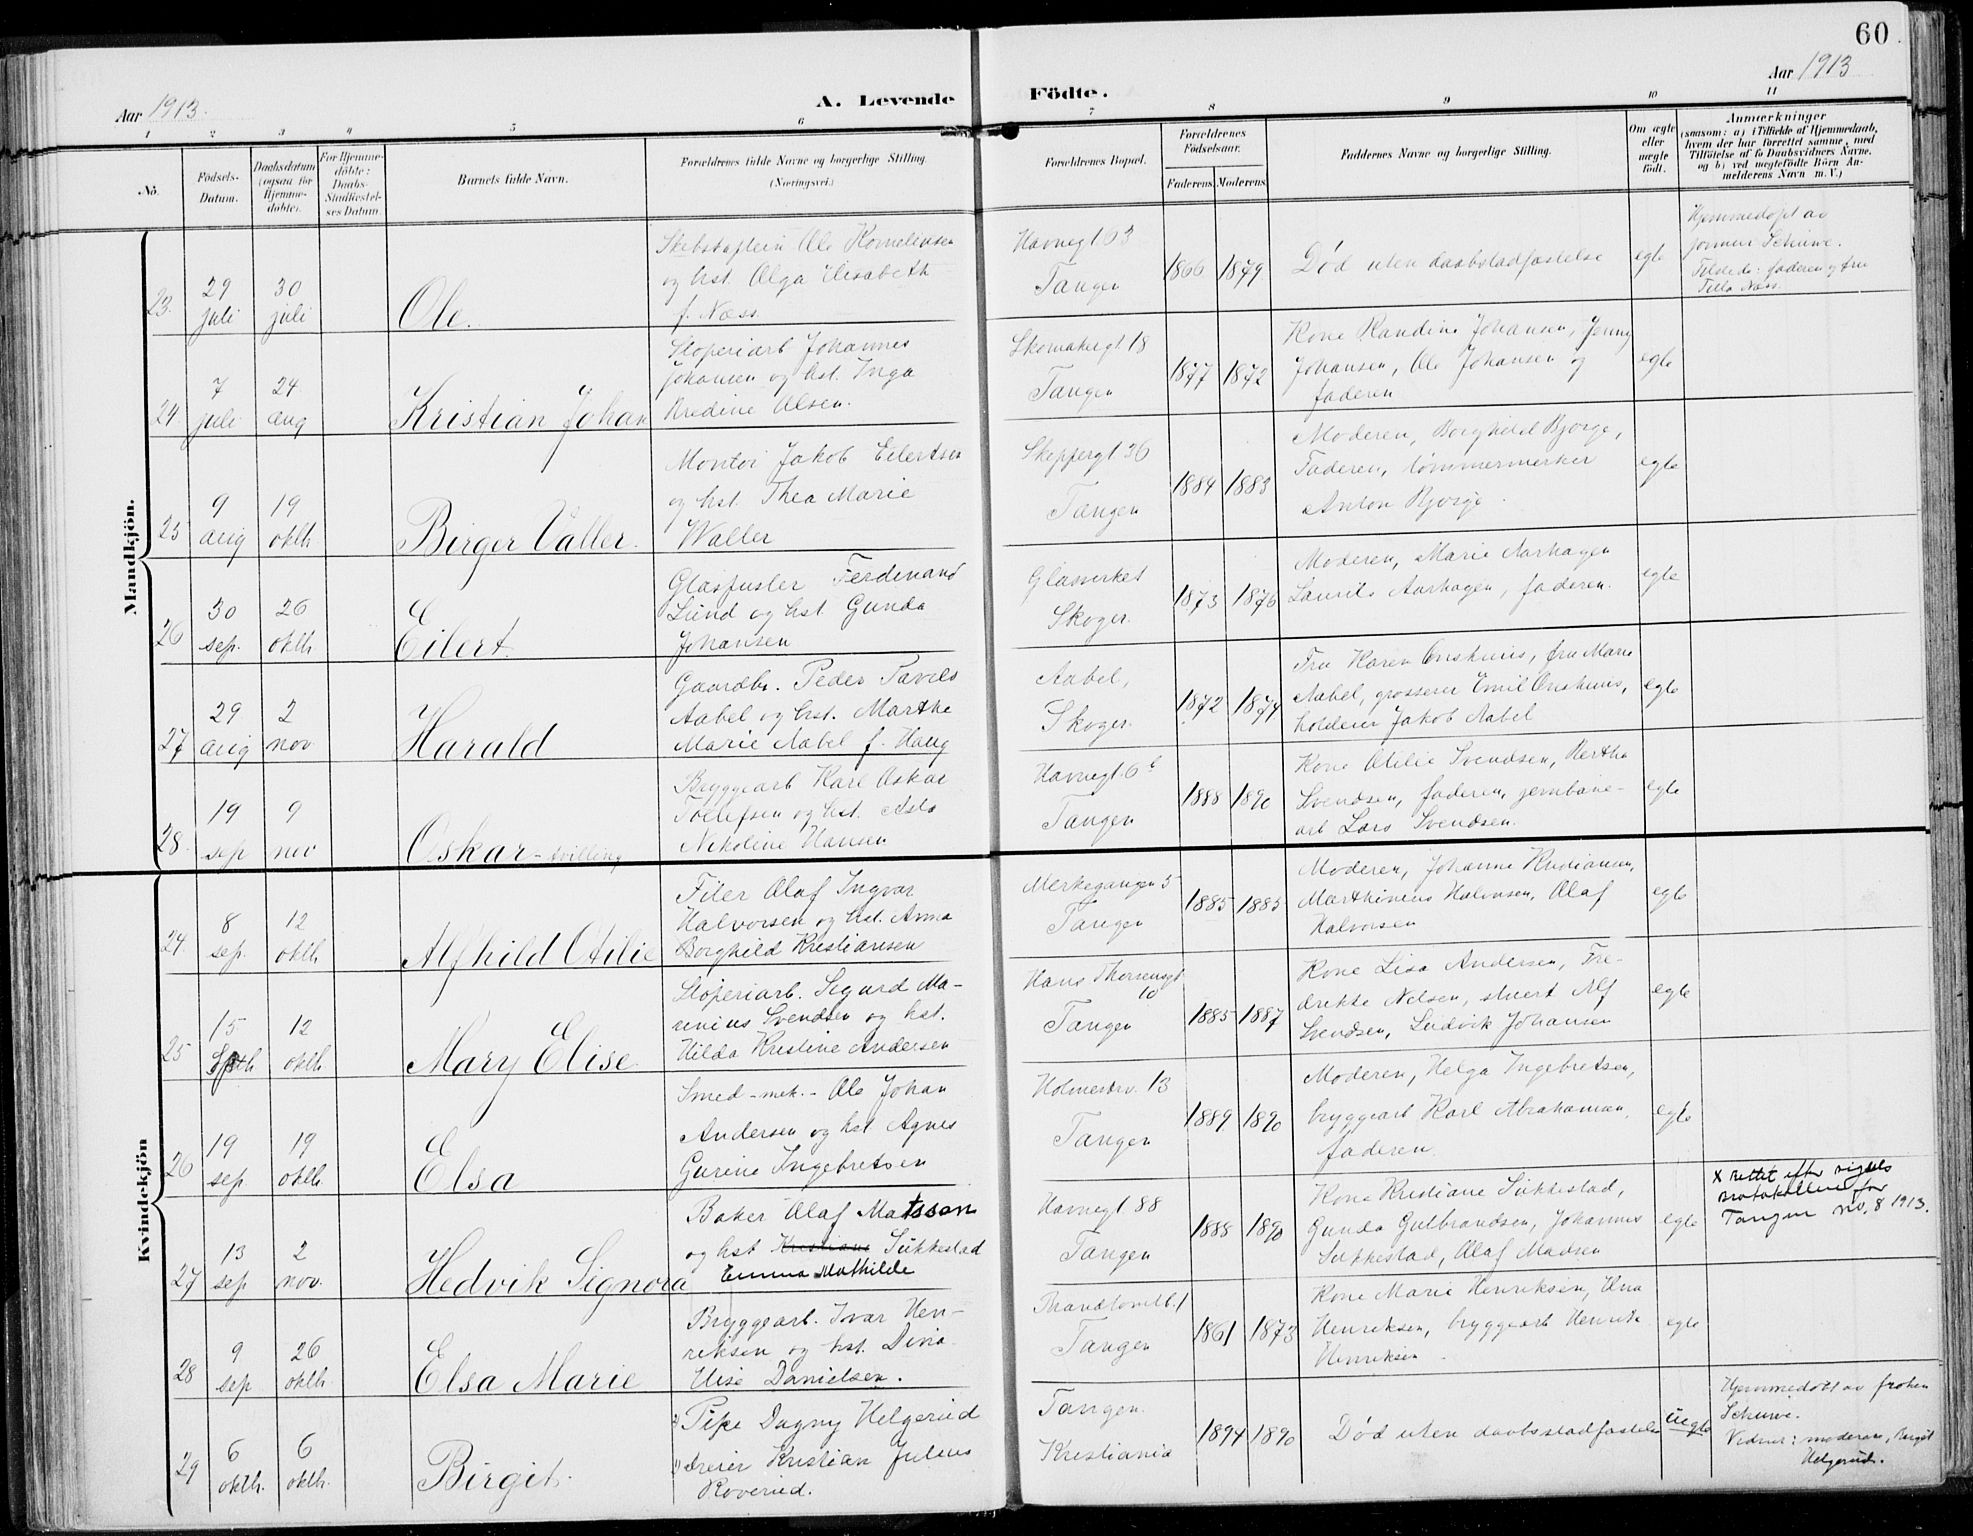 60
Aar 1913.
A. Levende
Födte.
Aar 1913
1 2 3 4 5 6 7 8 9 10 11
No.
Födsels-
Datum.
Daabsdatum
(ogsaa for
Hjemme-
döbte).
For Hjemme-
döbte:
Daabs-
Stadfæstel-
ses Datum.
Barnets fulde Navn.
Forældrenes fulde Navne og borgerlige Stilling.
(Næringsvei.)
Forældrenes Bopæl.
Forældrenes
Födselsaar.
Faderens. Moderens.
Faddernes Navne og borgerlige Stilling.
Om ægte
eller
uægte
födt.
Anmærkninger
(saasom: a) i Tilfælde af Hjemmedaab,
hvem der har forrettet samme, med
Tilföielse af to Daabsvidners Navne,
og b) ved uægtefödte Börn An-
melderens Navn m. V.)
Mandkjön.
23.
29
juli
30
juli
Ole.
Ole Kornelinsen
og hst. Olga Elisabeth
f. Næss
Havnegt 63
Tangen
1866
1879
Død uten daabstadfæstelse
egte
Hjemmedøpt av
jormor Schuwe.
Tilstede: faderen og fru
Næss.
24
7
juli
24
aug
Kristian Johan
Støperiarb Johannes
Johansen og hst. Inga
Olsen.
Skomakergt. 18
Tangen
1877
1872
Kone Randine Johansen, Jenny
Johansen, Ole Johansen og
faderen
egte
25
9
aug
19
oktb
Birger Valler.
Montør Jakob Eilertsen
og hst. Thea Marie
Waller
Skeppergt 36
Tangen
1884
1883
Moderen, Borghild Bjørge,
Faderen, tømmermerker
Anton Bjørge.
egte
26
30
sep.
26
oktb
Eilert.
Glaspuster Ferdinand
Lund og hst. Gunda
Johansen
Glasverket
Skoger.
1873
1876
Moderen, Marie Aarhagen
Laurits Aarhagen, faderen.
egte
27
29
aug
2
nov
Harald
Gaardbr. Peder Pavels
Aabel og hst. Marthe
Marie Aabel f. Haug
Aabel,
Skoger.
1872
1874
Fru Karen Onshuus, fru Marie
Aabel, grosserer Emil Onshuus,
Jakob Aabel
egte
28.
19
sep
9
nov
Oskar - tvilling
Bryggearb Karl Oskar
Tollefsen og hst. Asta
Nikoline Hansen
Havnegt. 6 b
Tangen
1888
1890
Kone Otilie Svendsen, Bertha
Svendsen, faderen, jernbane-
arb Lars Svendsen.
egte
Kvindekjön
24.
8
sep.
12
oktb
Alfhild Otilie
Filer Olaf Ingvar
Halvorsen og hst. Anna
Borghild Kristiansen
Merkegangen 5
Tangen
1885
1885
Moderen, Johanne Kristiansen,
Marthinius Halvorsen, Olaf
Halvorsen
egte
25
15
Septb
12
oktb
Mary Elise
Støperiarb. Sigurd Ma-
renius Svendsen og hst.
Hilda Kristine Andersen
Hans Thornsgt
10
Tangen
1885
1887
Kone Lisa Andersen, Fre-
drikke Nelsen, stuert Alf
Svendsen, Ludvik Johansen
egte
26
19
sep
19
oktb.
Elsa
Smed - mek. - Ole Johan
Andersen og hst Agnes
Gurine Ingebretsen
Holmestrv. 13
Tangen
1889
1890
Moderen, Helga Ingebretsen,
bryggearb Karl Abrahamsen,
faderen.
egte
27
13
sep
2
nov.
Hedvik Signora
Baker Olaf Matssen
og hst Kristiane Sukkestad
Emma Mathilde
Havnegt 88
Tangen
1888
1890
Kone Kristiane Sukkestad,
Gunda Gulbrandsen, Johannes
Sukkestad, Olaf Madsen
egte
x rettet efter vigsels
protokollen for
Tangen no. 8 1913.
28
9
sep
26
oktb.
Elsa Marie
Bryggearb. Ivar Hen-
riksen og hst. Dina
Elise Danielsen.
Tangen
1861
1873
Kone Marie Henriksen, Una
Henriksen, bryggearb Henrik
Henriksen.
egte
29
6
oktb.
6
oktb.
Birgit.
Pike Dagny Helgerud
dreier Kristian Julius
Roverud.
Tangen.
Kristiania
1894
1890
Død uten daabsstadfæstelse
uegte
Hjemmedøbt av frøken
Schuwe.
Vidner: moderen, Birgit
Helgerud.